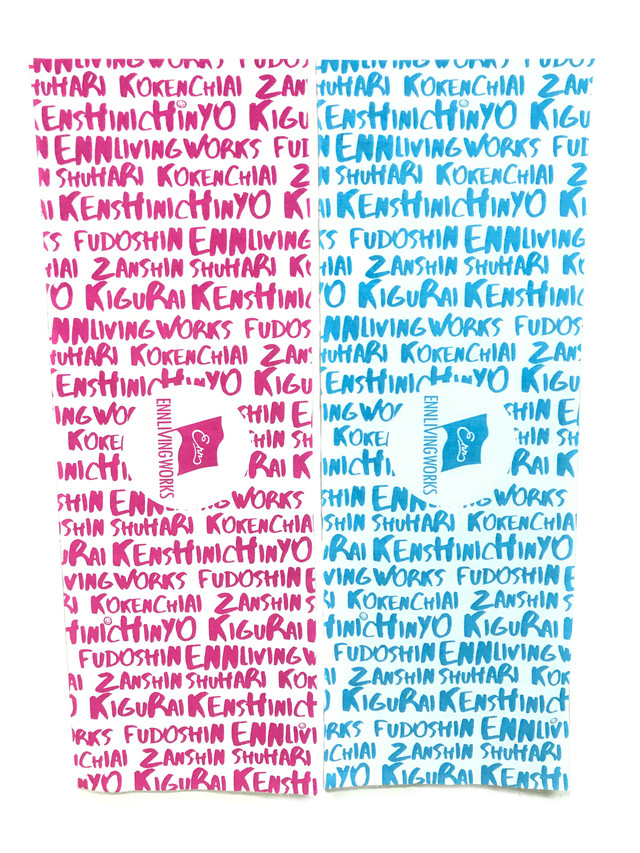 NNLIVINGWORKS FUDO
HUHARI KOKENCHIAI ZAN
KENSHINICHINYO KIGU
N ENNLIVINGWORKS FUD
N SHUHARI KOKENCHIAI Z
AI KENSHINICHINYO KI
KS FUDOSHIN ENNLIVING
HIAI ZANSHIN SHUHARI KO
YO KIGURAI KENSHINIC
NNLIVINGWORKS FUDOS
HUHARI KOKENCHIAI ZAN
KENSHINICHINYO KIGU
INGWO SHIN E
KOKE HIN SH
INICHI RAI K
ENNLIVINGWORKS
Enn
SHIN ENN WORKS
SHIN SHUHARI KOKENCHIA
RAI KENSHINICHINYO
IVINGWORKS FUDOSHIN E
RI KOKENCHIAI ZANSHIN S
HINICHINYO KIGURAI K
FUDOSHIN ENNLIVINGW
AI ZANSHIN SHUHARI KOK
KIGURAI KENSHINICH
RKS FUDOSHIN ENNLIVI
ICHIAI ZANSHIN SHUHARI
NYO KIGURAI KENSHI
NNLIVINGWORKS FUDOS
HUHARI KOKENCHIAI ZAN
KENSHINICHINYO KIGU
N ENNLIVINGWORKS FUD
N SHUHARI KOKENCHIAI Z
AI KENSHINICHINYO KI
KS FUDOSHIN ENNLIVING
HIAI ZANSHIN SHUHARI KO
YO KIGURAI KENSHINIC
NNLIVINGWORKS FUDOS
HUHARI KOKENCHIAI ZAN
KENSHINICHINYO KIGU
INGWO SHIN E
KOKE HIN SH
INICHI RAI K
ENNLIVINGWORKS
Enn
SHIN ENN WORKS
SHIN SHUHARI KOKENCHIA
RAI KENSHINICHINYO
VINGWORKS FUDOSHIN E
RI KOKENCHIAI ZANSHIN S
HINICHINYO KIGURAI K
FUDOSHIN ENNLIVINGW
AI ZANSHIN SHUHARI KOK
KIGURAI KENSHINICH
RKS FUDOSHIN ENNLIVI
CHIAI ZANSHIN SHUHARI
NYO KIGURAI KENSHI